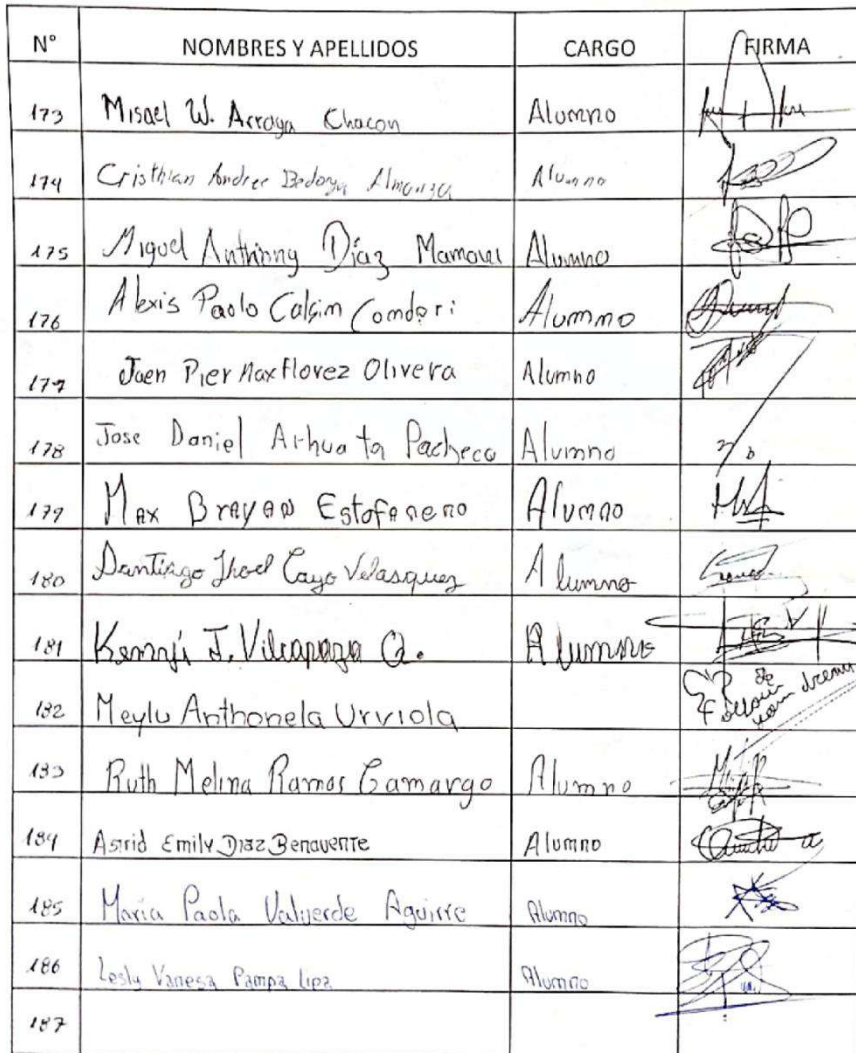 N° NOMBRES Y APELLIDOS CARGO FIRMA
173 Misael W. Arroya Chacon Alumno
174 Cristhian Andree Bedoya Almanza Alumno
175 Miguel Anthinny Díaz Mamani Alumno
176 Alexis Paolo Calsin Condori Alummo
177 Jaen Pier Max Florez Olivera Alumno
178 Jose Daniel Arhuata Pacheco Alumno
179 Max Brayan Estofanero Alumno
180 Santiago Jhoel Cayo Velasquez Alumno
181 Kemnji J. Vilcapaza Q. Alumno
182 Meylu Anthonela Urviola Follow your dream
183 Ruth Melina Ramos Camargo Alumno
184 Astrid Emily Diaz Benavente Alumno
185 Maria Paola Valverde Aguirre Alumno
186 Lesly Vanesa Pampa Lipa Alumno
187